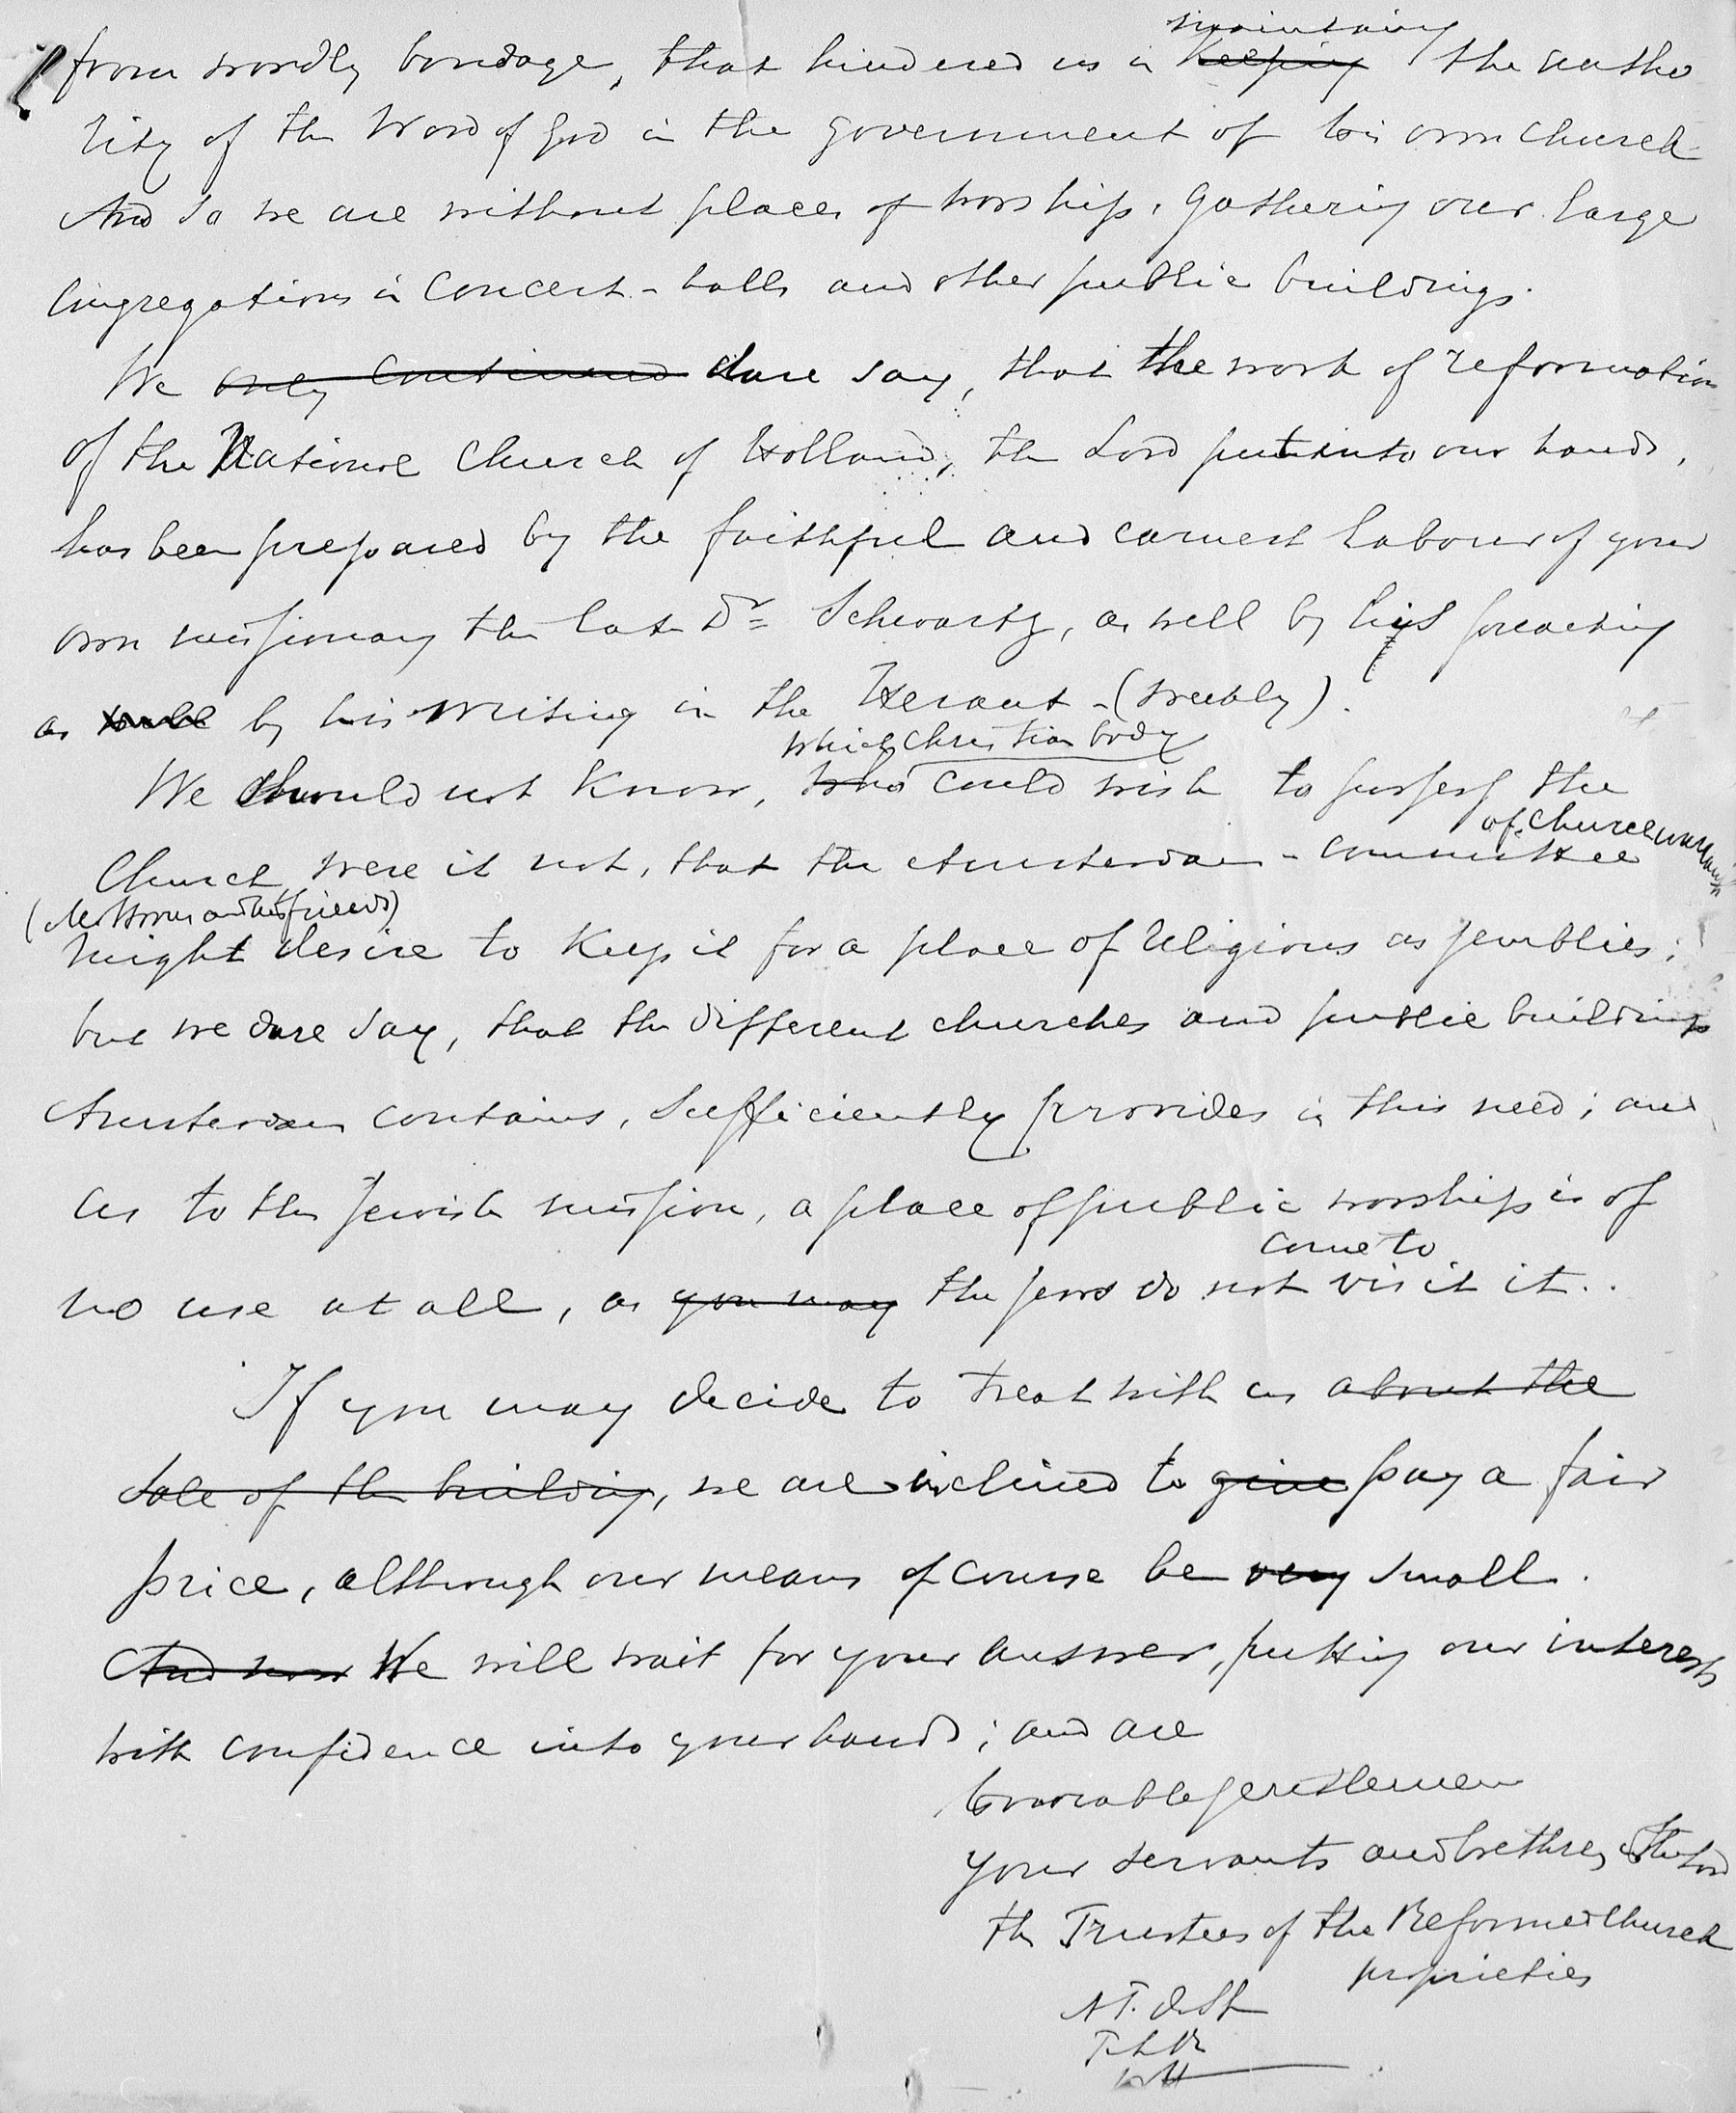 maintaining
from wordly bondage, that hindered us in keeping the autho
rity of the Word of God in the government of his own church
And so we are without places of worship, gathering our large
congregations in concert-halls and other public buildings.
We only continued dare say, that the work of reformation
of the National Church of Holland, the Lord put into our hands,
has been prepared by the faithful and earnest labour of your
own missionary the late Dr Schwartz, as well by his preaching
as well by his writing in the Heraut-(weekly).
which Christian body
We should not know, who could wish to possess the
of Churchwardens
Church, were it not, that the Amsterdam-committee
(and his friends)
might desire to keep it for a place of religious assemblies;
but we dare say, that the different churches and public buildings
Amsterdam contains, sufficiently provides in this need; and
as to the Jewish mission, a place of public worship is of
come to
no use at all, as you may the Jews do not visit it.
If you may decide to treat with us about the
sale of the building, we are inclined to give pay a fair
price, although our means of course be very small.
And now We will wait for your answer, putting our interests
with confidence into your hands; and are
honorable gentlemen
your servants and brethren in the Lord
the Trustees of the Reformed Church
proprieties